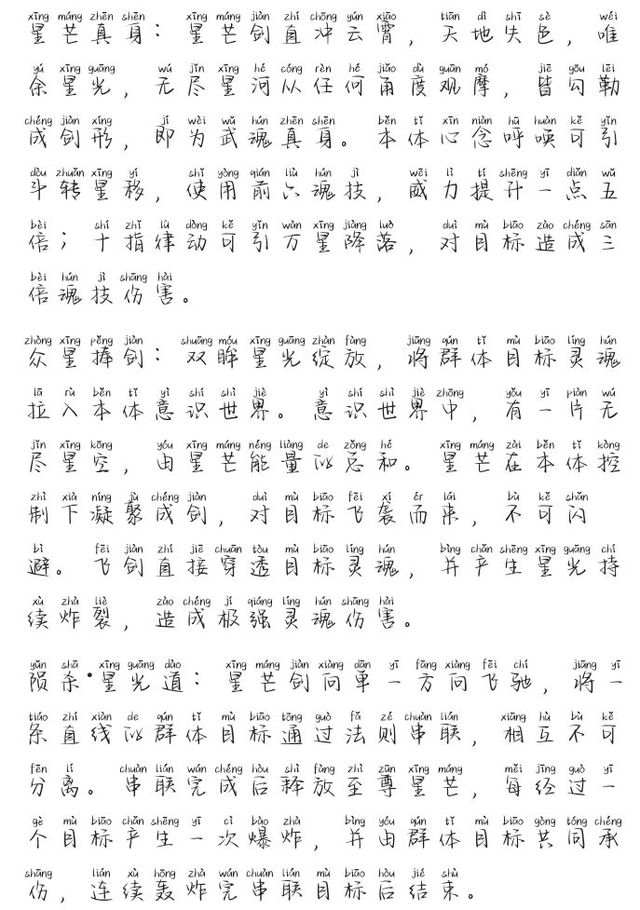 xīng máng zhēn shēn xīng máng jiàn zhí chōng yún xiāo tiān dì shī sè wéi
星芒真身：星芒剑直冲云霄，天地失色，唯
yú xīng guāng wú jìn xīng hé cóng rèn hé jiǎo dù guān mó jiē gōu lēi
余星光，无尽星河从任何角度观摩，皆勾勒
chéng jiàn xíng jí wéi wǔ hún zhēn shēn běn tǐ xīn niàn hū huàn kě yǐn
成剑形，即为武魂真身。本体心念呼唤可引
dǒu zhuǎn xīng yí shǐ yòng qián liù hún jì wēi lì tí shēng yī diǎn wǔ
斗转星移，使用前六魂技，威力提升一点五
bèi shí zhǐ lǜ dòng kě yǐn wàn xīng jiàng luò duì mù biāo zào chéng sān
倍；十指律动可引万星降落，对目标造成三
bèi hún jì shāng hài
倍魂技伤害。
zhòng xīng pěng jiàn shuāng móu xīng guāng zhàn fàng jiāng qún tǐ mù biāo líng hún
众星捧剑：双眸星光绽放，将群体目标灵魂
lā rù běn tǐ yì shí shì jiè yì shí shì jiè zhōng yǒu yī piàn wú
拉入本体意识世界。意识世界中，有一片无
jǐn xīng kōng yóu xīng máng néng liàng de zǒng hé xīng máng zài běn tǐ kòng
尽星空，由星芒能量的总和。星芒在本体控
zhì xià níng jù chéng jiàn duì mù biāo fēi xí ér lái bù kě shǎn
制下凝聚成剑，对目标飞袭而来，不可闪
bì fēi jiàn zhí jiē chuān tòu mù biāo líng hún bìng chǎn shēng xīng guāng chí
避。飞剑直接穿透目标灵魂，并产生星光持
xù zhà liè zào chéng jí qiáng líng hún shāng hài
续炸裂，造成极强灵魂伤害。
yǔn shā xīng guāng dào xīng máng jiàn xiàng dān yī fāng xiàng fēi chí jiāng yī
陨杀•星光道：星芒剑向单一方向飞驰，将一
tiáo zhí xiàn de qún tǐ mù biāo tōng guò fǎ zé chuàn lián xiāng hù bù kě
条直线的群体目标通过法则串联，相互不可
fēn lí chuàn lián wán chéng hòu shì fàng zhì zūn xīng máng měi jīng guò yī
分离。串联完成后释放至尊星芒，每经过一
gè mù biāo chǎn shēng yī cì bào zhà bìng yóu qún tǐ mù biāo gòng tóng chéng
个目标产生一次爆炸，并由群体目标共同承
shāng lián xù hōng zhà wán chuàn lián mù biāo hòu jié shù
伤，连续轰炸完串联目标后结束。